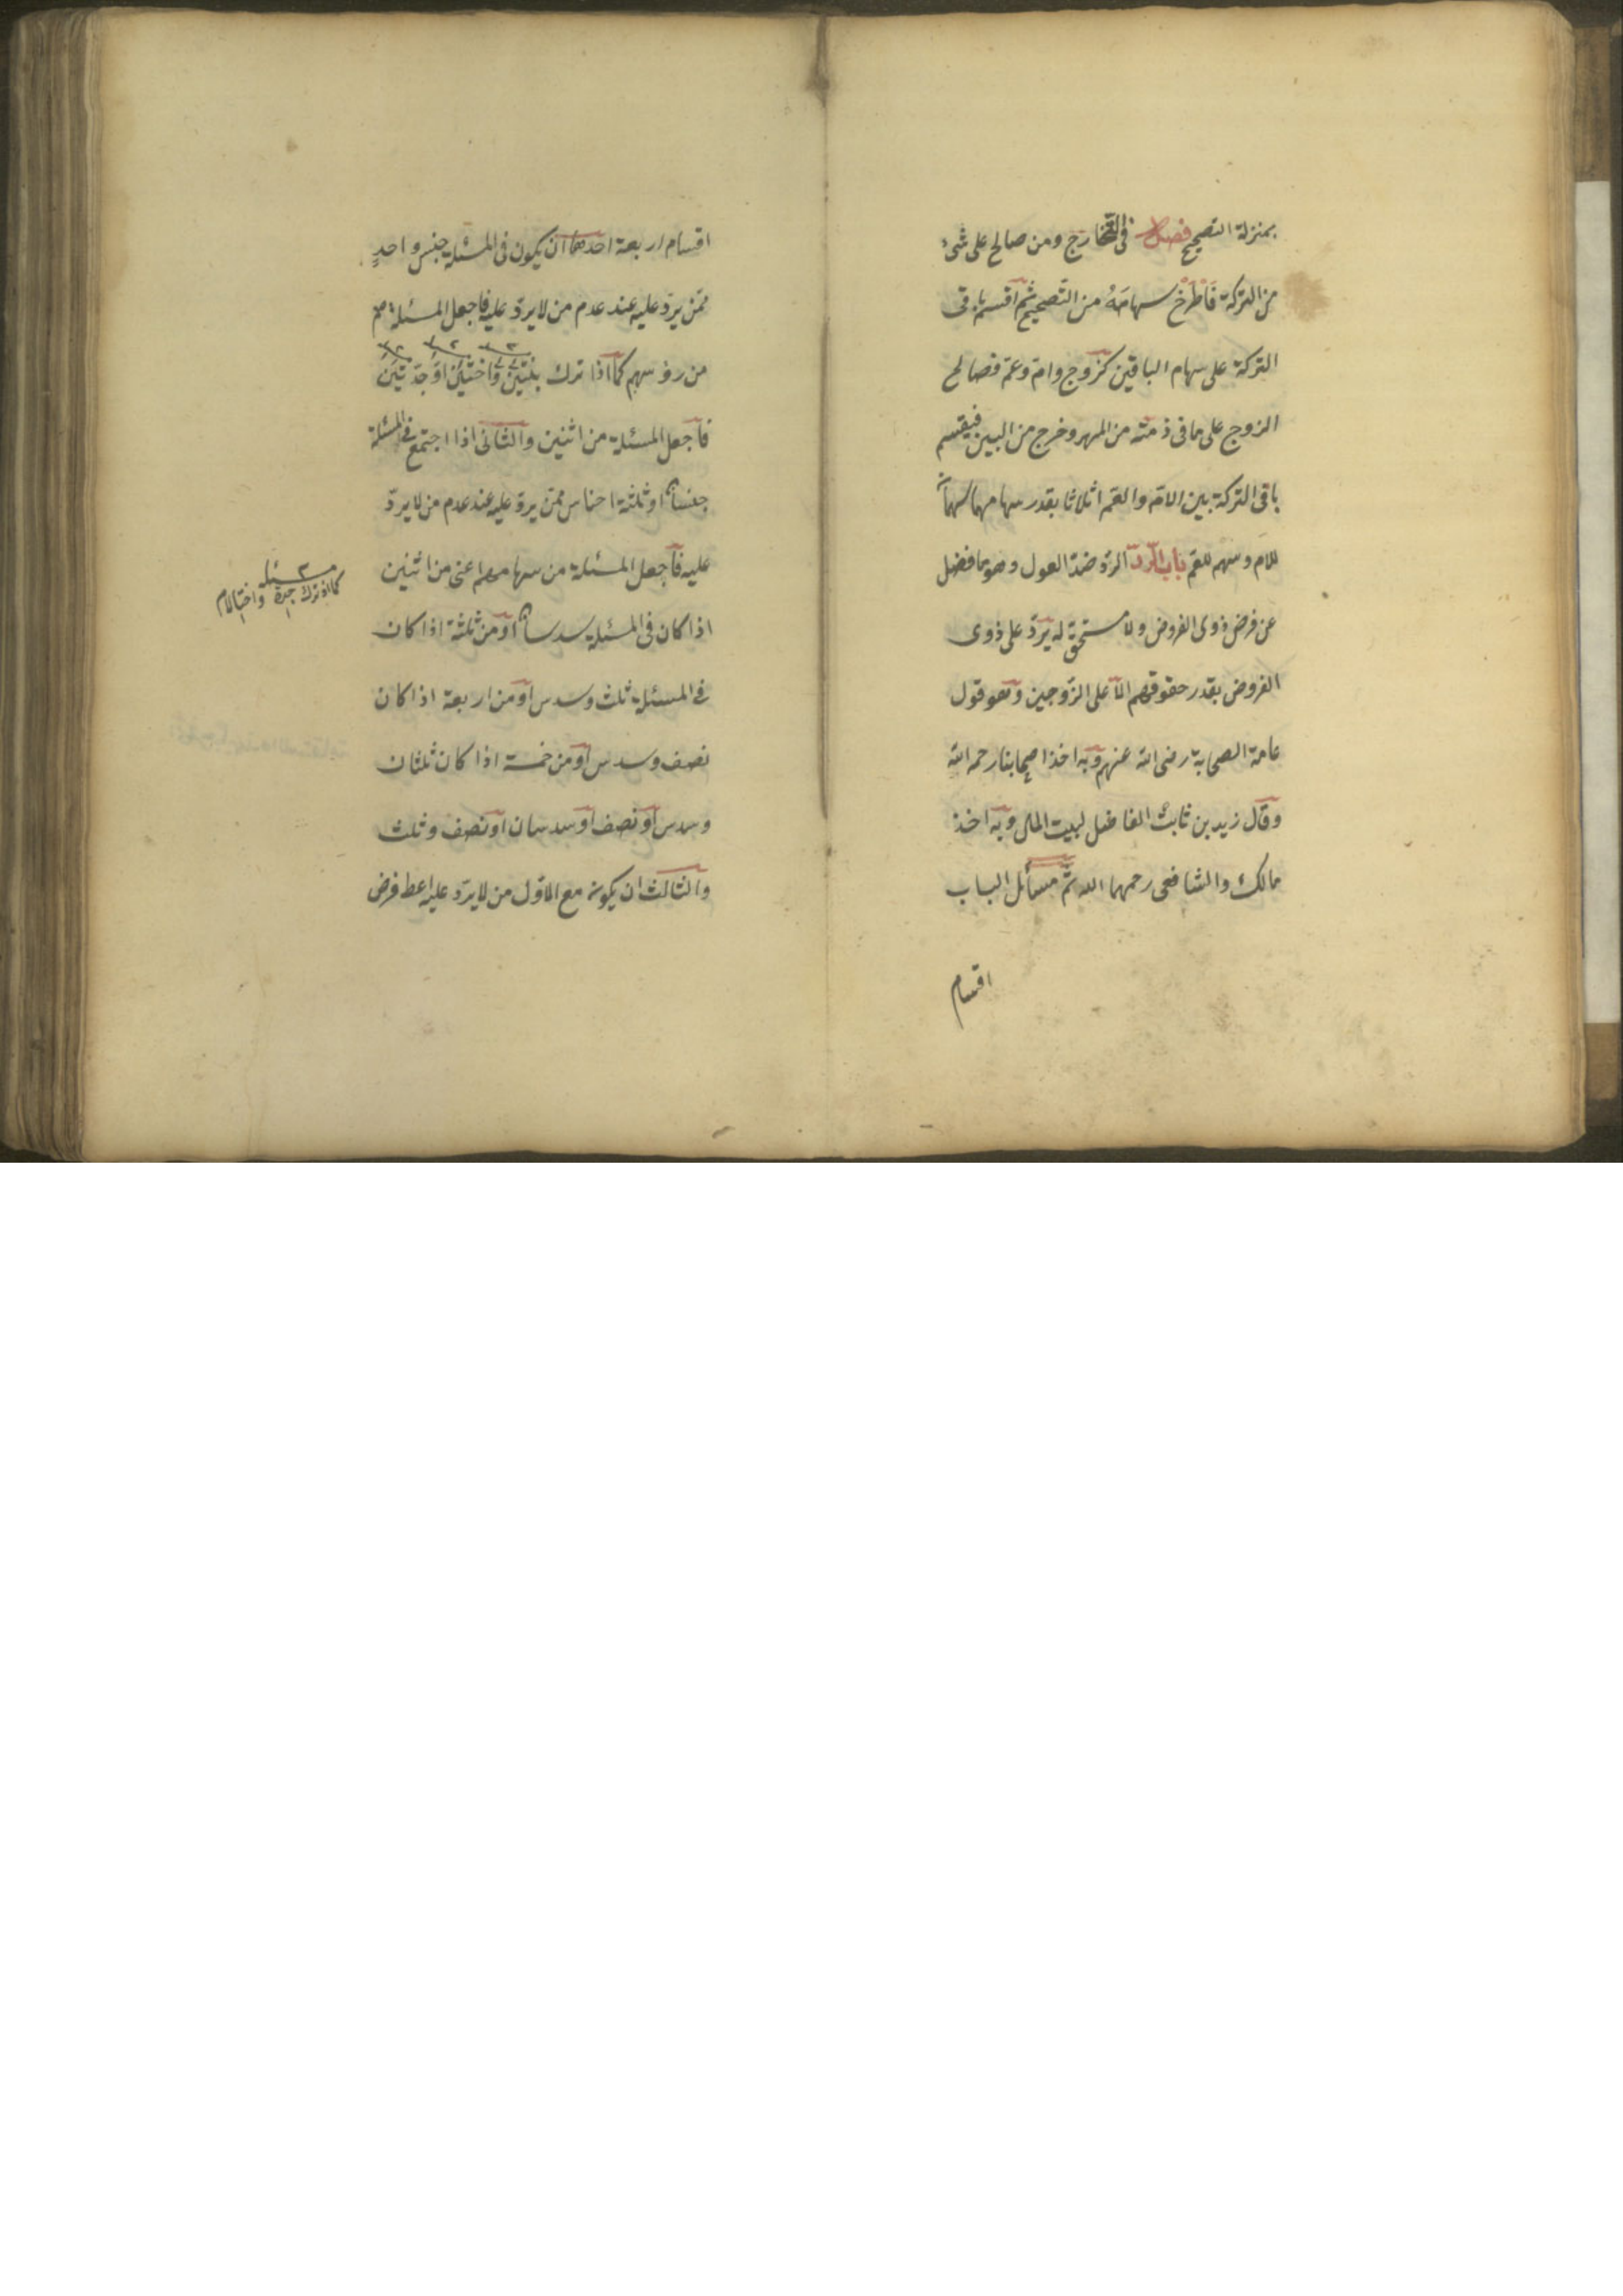 بمنزلة التصحيح فصل فى التخارج ومن صالح على شئ
من التركة فاطرح سهامه من التصحيح ثم اقسم باقى
التركة على سهام الباقين كزوج وام وعم فصالح
الزوج على ما فى ذمته من المهر وخرج من البين فيقسم
باقى التركة بين الام والعم اثلاثا بقدر سهامهما سهمان
للام وسهم للعم باب الرد الرد ضد العول وهو ما فضل
عن فرض ذوى الفروض ولا مستحق له يرد على ذوى
الفروض بقدر حقوقهم الا على الزوجين وهو قول
عامة الصحابة رضى الله عنهم وبه اخذ اصحابنا رحمه الله
وقال زيد بن ثابت الفاضل لبيت المال وبه اخذ
مالك والشافعى رحمهما الله ثم مسائل الباب
اقسام
اقسام اربعة احدها ان يكون فى المسئلة جنس واحد
ممن يرد عليه عند عدم من لا يرد عليه فاجعل المسئلة
من رؤسهم كما اذا ترك بنتين واختين او جدتين
فاجعل المسئلة من اثنين والثانى اذا اجتمع فى المسئلة
جنسان او ثلثة اجناس ممن يرد عليه عند عدم من لا يرد
عليه فاجعل المسئلة من سهامهم اعنى من اثنين
اذا كان فى المسئلة سدسان او من ثلثة اذا كان
فى المسئلة ثلث وسدس او من اربعة اذا كان
نصف وسدس او من خمسة اذا كان ثلثان
وسدس او نصف او سدسان او نصف وثلث
والثالث ان يكون مع الاول من لا يرد عليه اعط فرض
مسئلة ٣
كما اذا ترك جدة واختا لام